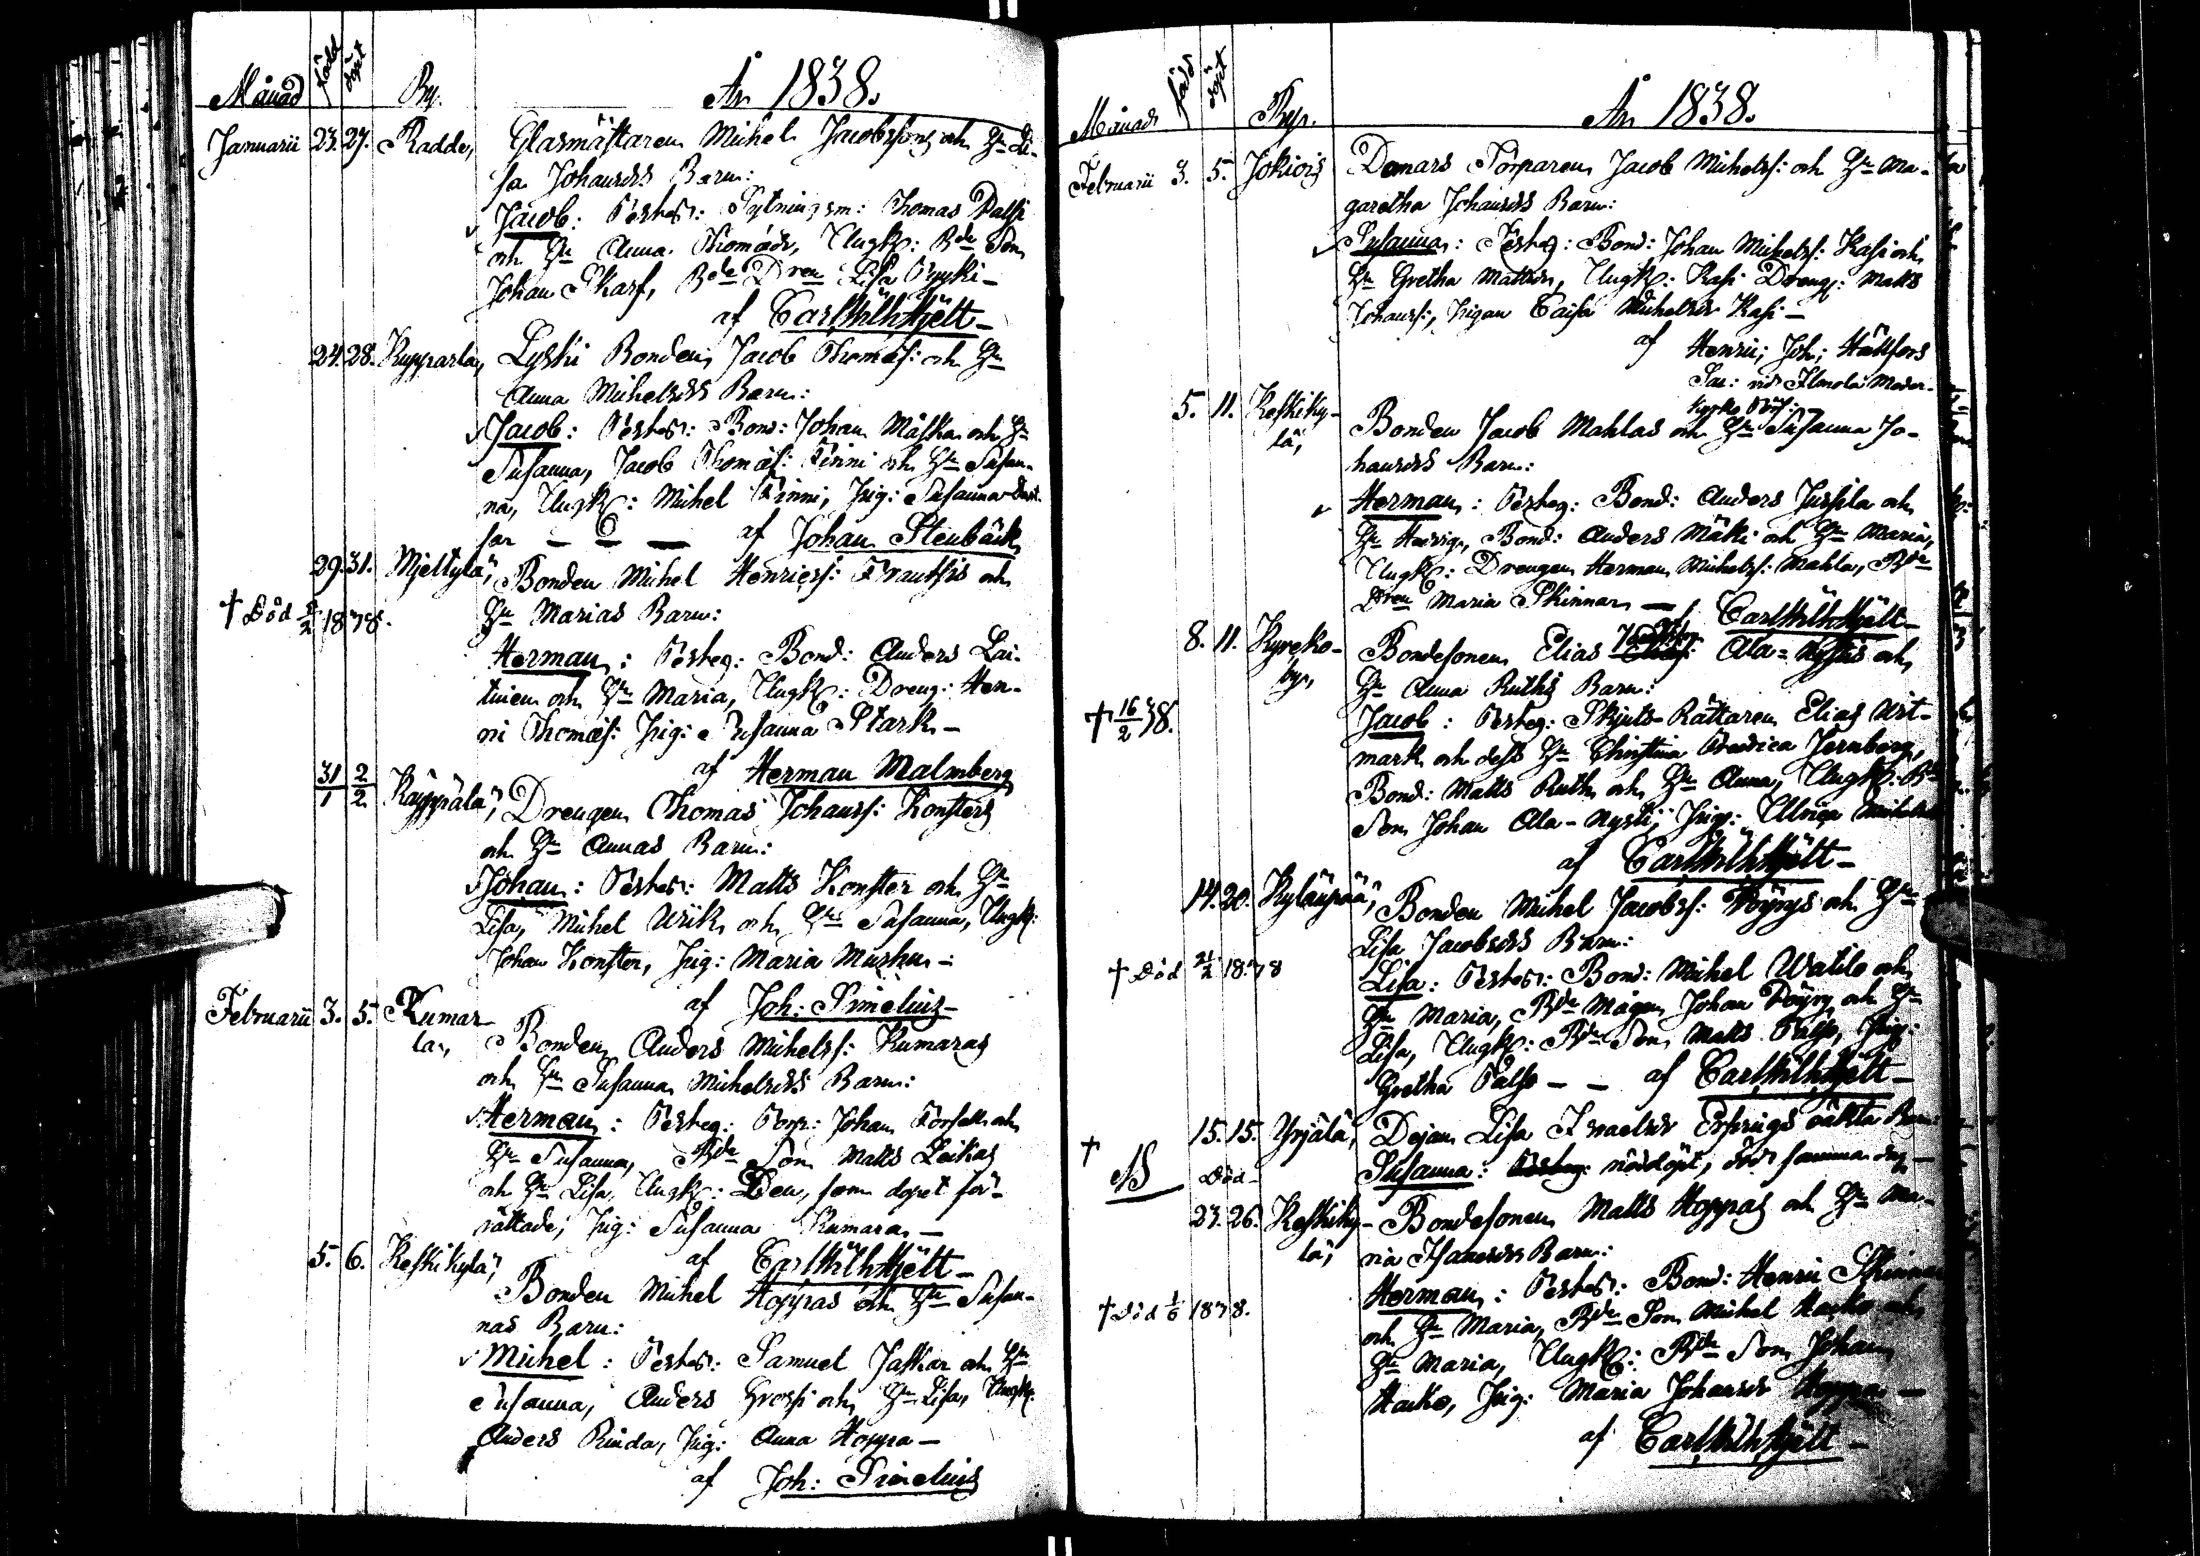 Månad född döpt By. År 1838.
Januarii 23. 27. Radde, Glasmästaren Michel Jacobssons och Hu Li-
sa Johansdrs Barn:
Jacob: Testes: Sytningsm: Thomas Palsi
och Hu Anna Thomasdr, Ungk: Bde Son
Johan Skarf, Bde Dren Lisa Pyyki-
af Carl Wilh Hjelt-
24. 28. Kupparla, Lyski Bonden Jacob Thomæs: och Hu
Anna Michelsdrs Barn:
Jacob: Testes: Bond: Johan Mäska och Hu
Susanna, Jacob Thomæs: Finni och Hu Susan-
na, Ungk: Michel Finni, Pig: Susanna
af Johan Stenbäck
29. 31. Mjeltylä, Bonden Michel Henricss: Frantsis och
† Död 5/2 1838. Hu Marias Barn:
Herman: Testes: Bond: Anders Lai-
tinen och Hu Maria, Ungk: Dreng: Hen-
ric Thomæs: Pig: Susanna Stark-
af Herman Malmberg
31/1 2/2 Kaippala, Drengen Thomas Johanss: Konsters
och Hu Annas Barn:
Johan: Testes: Matts Konster och Hu
Lisa, Michel Wiik och Hu Susanna, Ungk:
Johan Konster, Pig: Maria Murhu-
af Joh: Simelius-
Februarii 3. 5. Kumar-
la, Bonden Anders Michelss: Kumaras
och Hu Susanna Michelsdrs Barn:
Herman: Testes: Torp: Johan Torsell och
Hu Susanna, Bde Son Matts Leikas
och Hu Lisa, Ungk: Den, som dopet för-
rättade, Pig: Susanna Kumara-
af Carl Wilh Hjelt-
5. 6. Keskikylä, Bonden Michel Hoppas och Hu Susan-
nas Barn:
Michel: Testes: Samuel Jaskar och Hu
Susanna, Anders Grossi och Hu Lisa, Ungk:
Anders Rinda, Pig: Anna Hoppa-
af Joh: Simelius
Månad född döpt By. År 1838.
Februarii 3. 5. Jokiois Domars Torparen Jacob Michelss: och Hu Ma-
garetha Johansdrs Barn:
Susanna: Testes: Bond: Johan Michelss: Kasi och
Hu Gretha Mattsdr, Ungk: Kasi Dreng: Matts
Johanss:, Pigan Caisa Michelsdr Kasi-
af Henric; Joh; Hällfors
Sac: vid Ilmola Moder-
kyrko
5. 11. Keskiky-
lä, Bonden Jacob Mahlas och Hu Susanna Jo-
hansdrs Barn:
Herman: Testes: Bond: Anders Jussila och
Hu Hedvig, Bond: Anders Mäki och Hu Maria,
Ungk: Drengen Herman Michelss: Mahla, Bde
Dren Maria Skinnar- af Carl Wilh Hjelt-
8. 11. Kyrko-
by, Bondesonen Elias Ala-Nystis och
Hu Anna Ruths Barn:
† 16/2 38. Jacob: Testes: Skjuts-Rättaren Elias Wit-
mark och dess Hu Christina Fredrica Jernberg,
Bond: Matts Ruth och Hu Anna, Ungk: Bde
Son Johan Ala-Nysti, Pig: Ulrica
af Carl Wilh Hjelt-
14. 20. Kyläupää, Bonden Michel Jacobss: Pöyrys och Hu
Lisa Jacobsdrs Barn:
† Död 21/2 1838 Lisa: Testes: Bond: Michel Watilo och
Hu Maria, Bde Mågen Johan Pöyry och Hu
Lisa, Ungk: Bde Son Matts Palso, Pig:
Gretha Palso - - af Carl Wilh Hjelt-
† NB 15. 15. Yrjälä, Dejan Lisa Israelsdr Erspings oäkta Barn:
Död- Susanna: nöddöpt, död samma dag-
23. 26. Keskiky-
lä, Bondesonen Matts Hoppas och Hu Ma-
ria Isaacsdrs Barn:
† Död 1838. Herman: Testes: Bond: Henric Skinnar
och Hu Maria, Bde Son Michel Harko och
Hu Maria, Ungk: Bde Son Johan
Harko, Pig: Maria Johansdr Hoppa-
af Carl Wilh Hjelt-